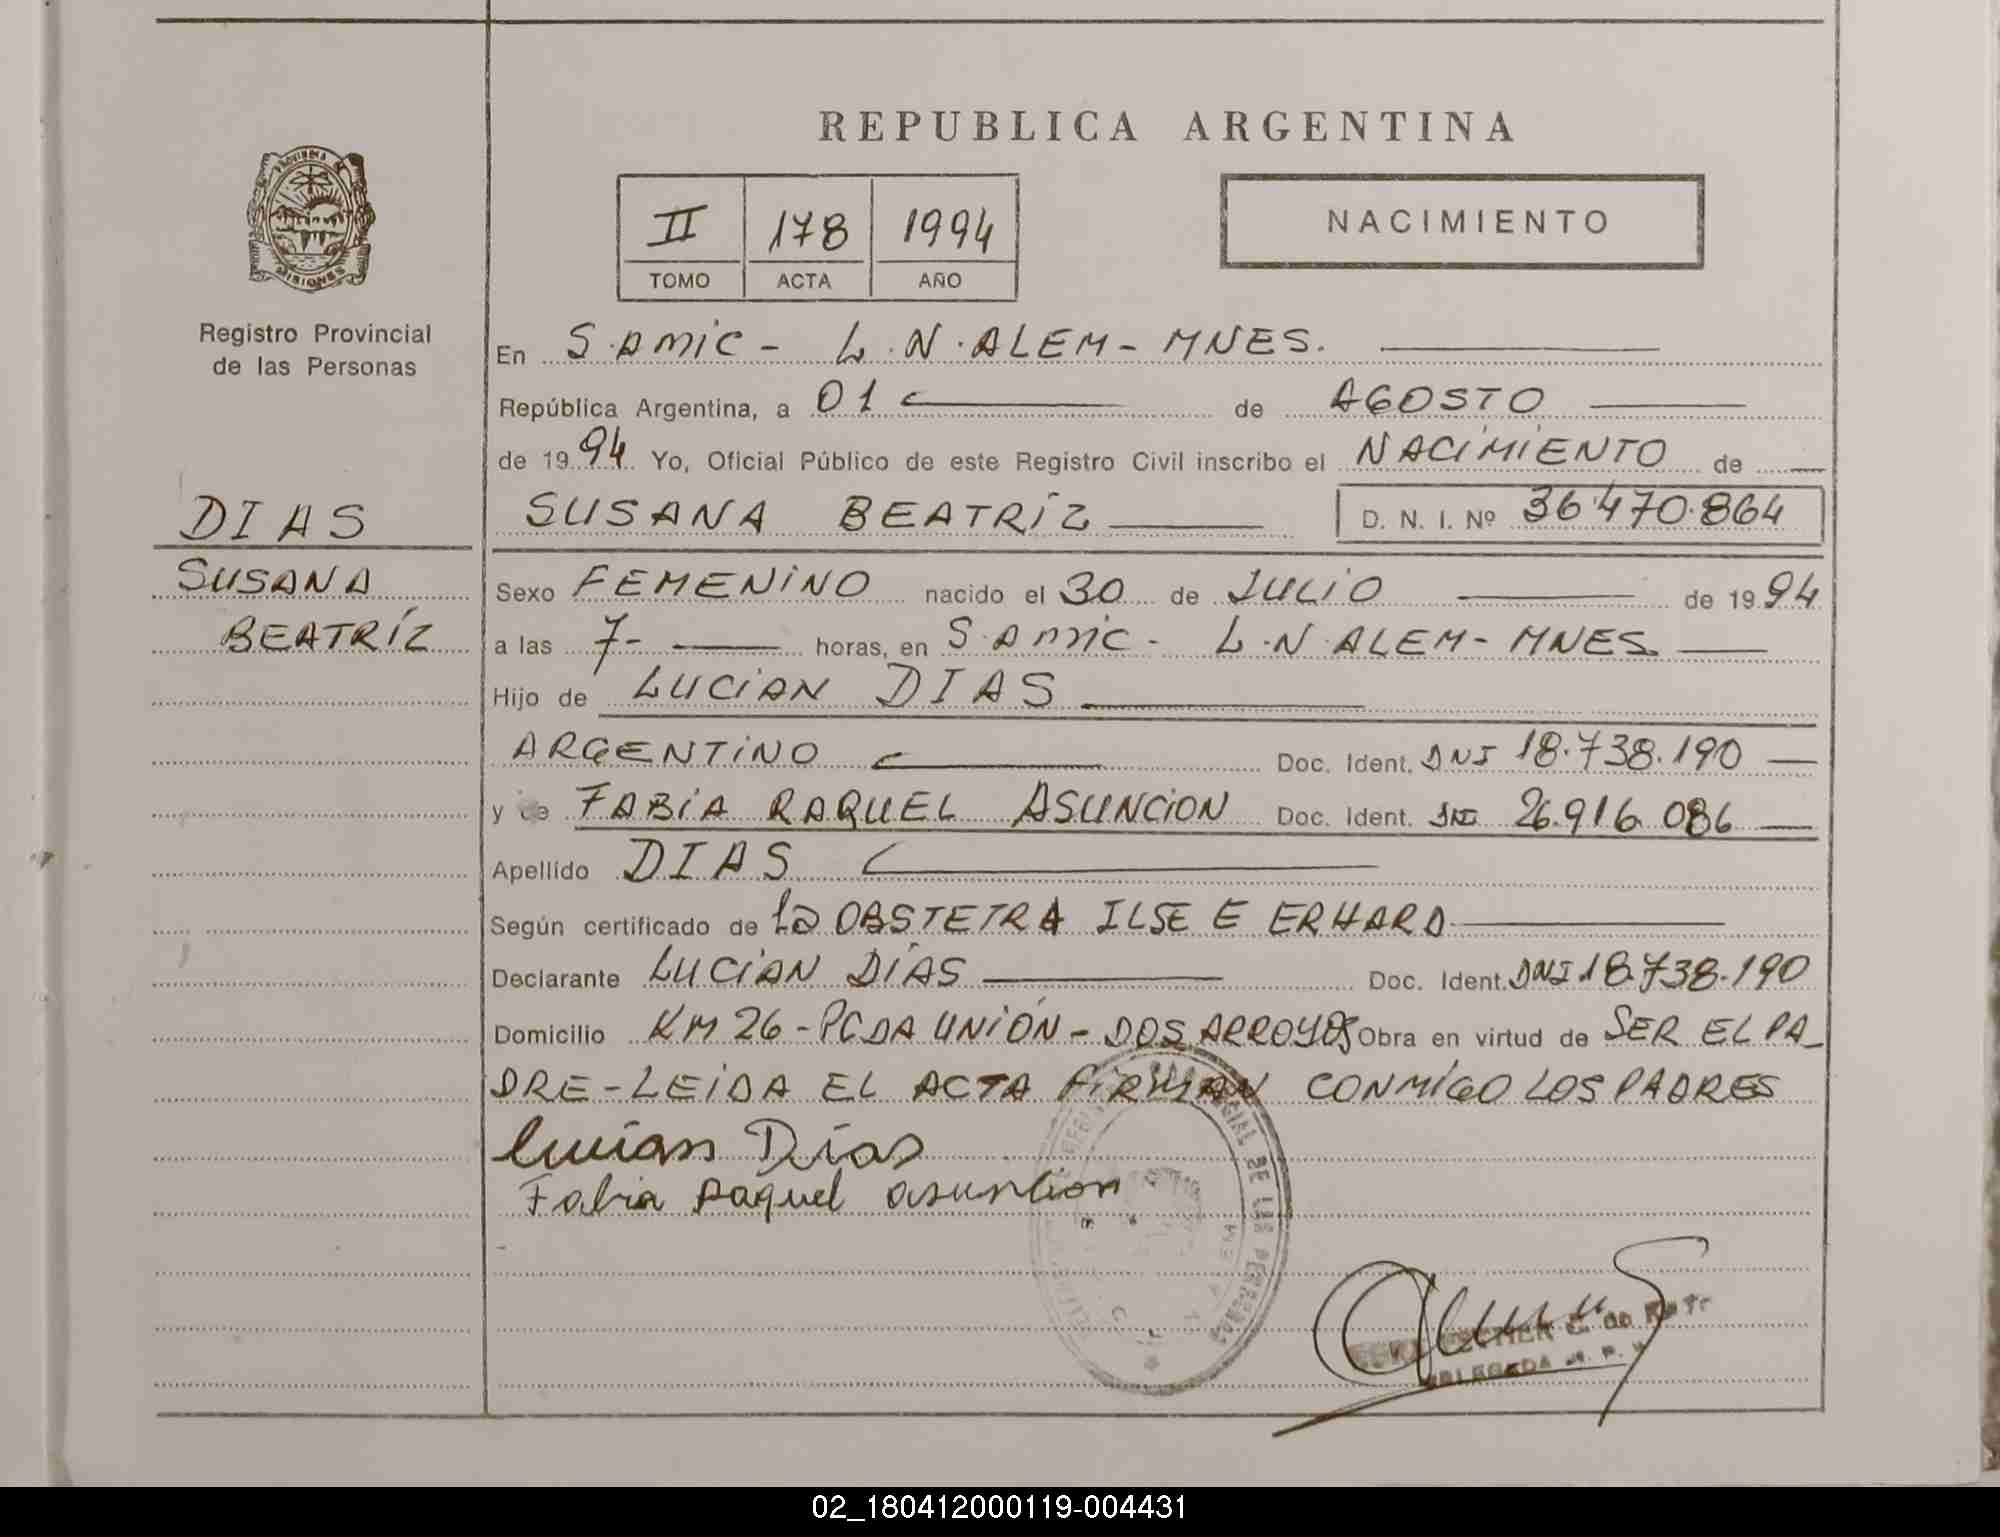 REPUBLICA ARGENTINA
PROVINCIA DE
MISIONES
Registro Provincial
de las Personas
II 178 1994
TOMO ACTA AÑO
NACIMIENTO
En S. AMIC - L. N. ALEM - MNES.
República Argentina, a 01 de AGOSTO
de 1994 Yo, Oficial Público de este Registro Civil inscribo el NACIMIENTO de
SUSANA BEATRÍZ D. N. I. Nº 36.470.864
DIAS
SUSANA
BEATRÍZ
Sexo FEMENINO nacido el 30 de JULIO de 1994
a las 7- horas, en S. AMIC - L. N. ALEM - MNES
Hijo de LUCIAN DIAS
ARGENTINO Doc. Ident. DNI 18.738.190
y de FABIA RAQUEL ASUNCION Doc. Ident. DNI 26.916.086
Apellido DIAS
Según certificado de la OBSTETRA ILSE E ERHARD
Declarante LUCIAN DÍAS Doc. Ident. DNI 18.738.190
Domicilio KM 26 - PCDA UNIÓN - DOS ARROYOS Obra en virtud de SER EL PA-
DRE - LEIDA EL ACTA FIRMAN CONMIGO LOS PADRES
Lucian Dias
Fabia Raquel asuncion
DE LAS PERSONAS
02_180412000119-004431